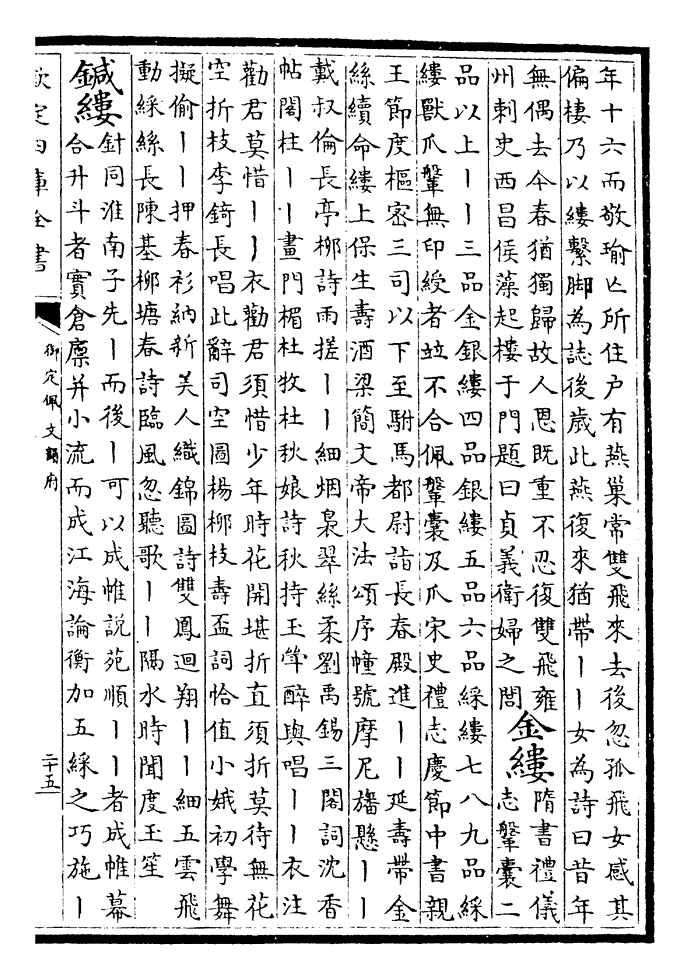 年十六而敬瑜亡所住户有燕巢常雙飛來去後忽孤飛女感其
偏棲乃以縷繫脚為誌後歲此燕復來猶帶丨丨女為詩曰昔年
無偶去今春猶獨歸故人恩既重不忍復雙飛雍
州刺史西昌侯藻起樓于門題曰貞義衛婦之閭
金縷
隋書禮儀
志鞶囊二
品以上丨丨三品金銀縷四品銀縷五品六品綵縷七八九品綵
縷獸爪鞶無印綬者竝不合佩鞶囊及爪宋史禮志慶節中書親
王節度樞宻三司以下至駙馬都尉詣長春殿進丨丨延壽帶金
絲續命縷上保生壽酒梁簡文帝大法頌序幢號摩尼旛懸丨丨
戴叔倫長亭柳詩雨搓丨丨細烟裊翠絲柔劉禹錫三閣詞沈香
帖閣柱丨丨畫門楣杜牧杜秋娘詩秋持玉斝醉與唱丨丨衣注
勸君莫惜丨丨衣勸君須惜少年時花開堪折直須折莫待無花
空折枝李錡長唱此辭司空圖楊柳枝壽盃詞恰值小娥初學舞
擬偷丨丨押春衫納新美人織錦圖詩雙鳳迴翔丨丨細五雲飛
動綵絲長陳基柳塘春詩臨風忽聽歌丨丨隔水時聞度玉笙
鍼縷
針同淮南子先丨而後丨可以成帷説苑順丨丨者成帷幕
合升斗者實倉廪并小流而成江海論衡加五綵之巧施丨
欽定四庫全書
御定佩文韻府
二十五